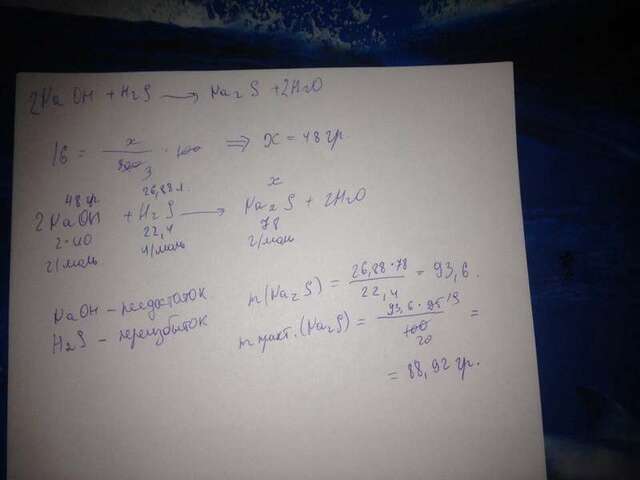 2NaOH + H2S → Na2S + 2H2O
16 = x / 300 · 100 ⇒ x = 48 гр.
3
48 гр 26,88 л. x
2NaOH + H2S → Na2S + 2H2O
2·40 22,4 78
г/моль л/моль г/моль
NaOH – недостаток
H2S – переизбыток
m(Na2S) = 26,88·78 / 22,4 = 93,6.
m практ.(Na2S) = 93,6 · 95 19 / 100 20 =
= 88,92 гр.